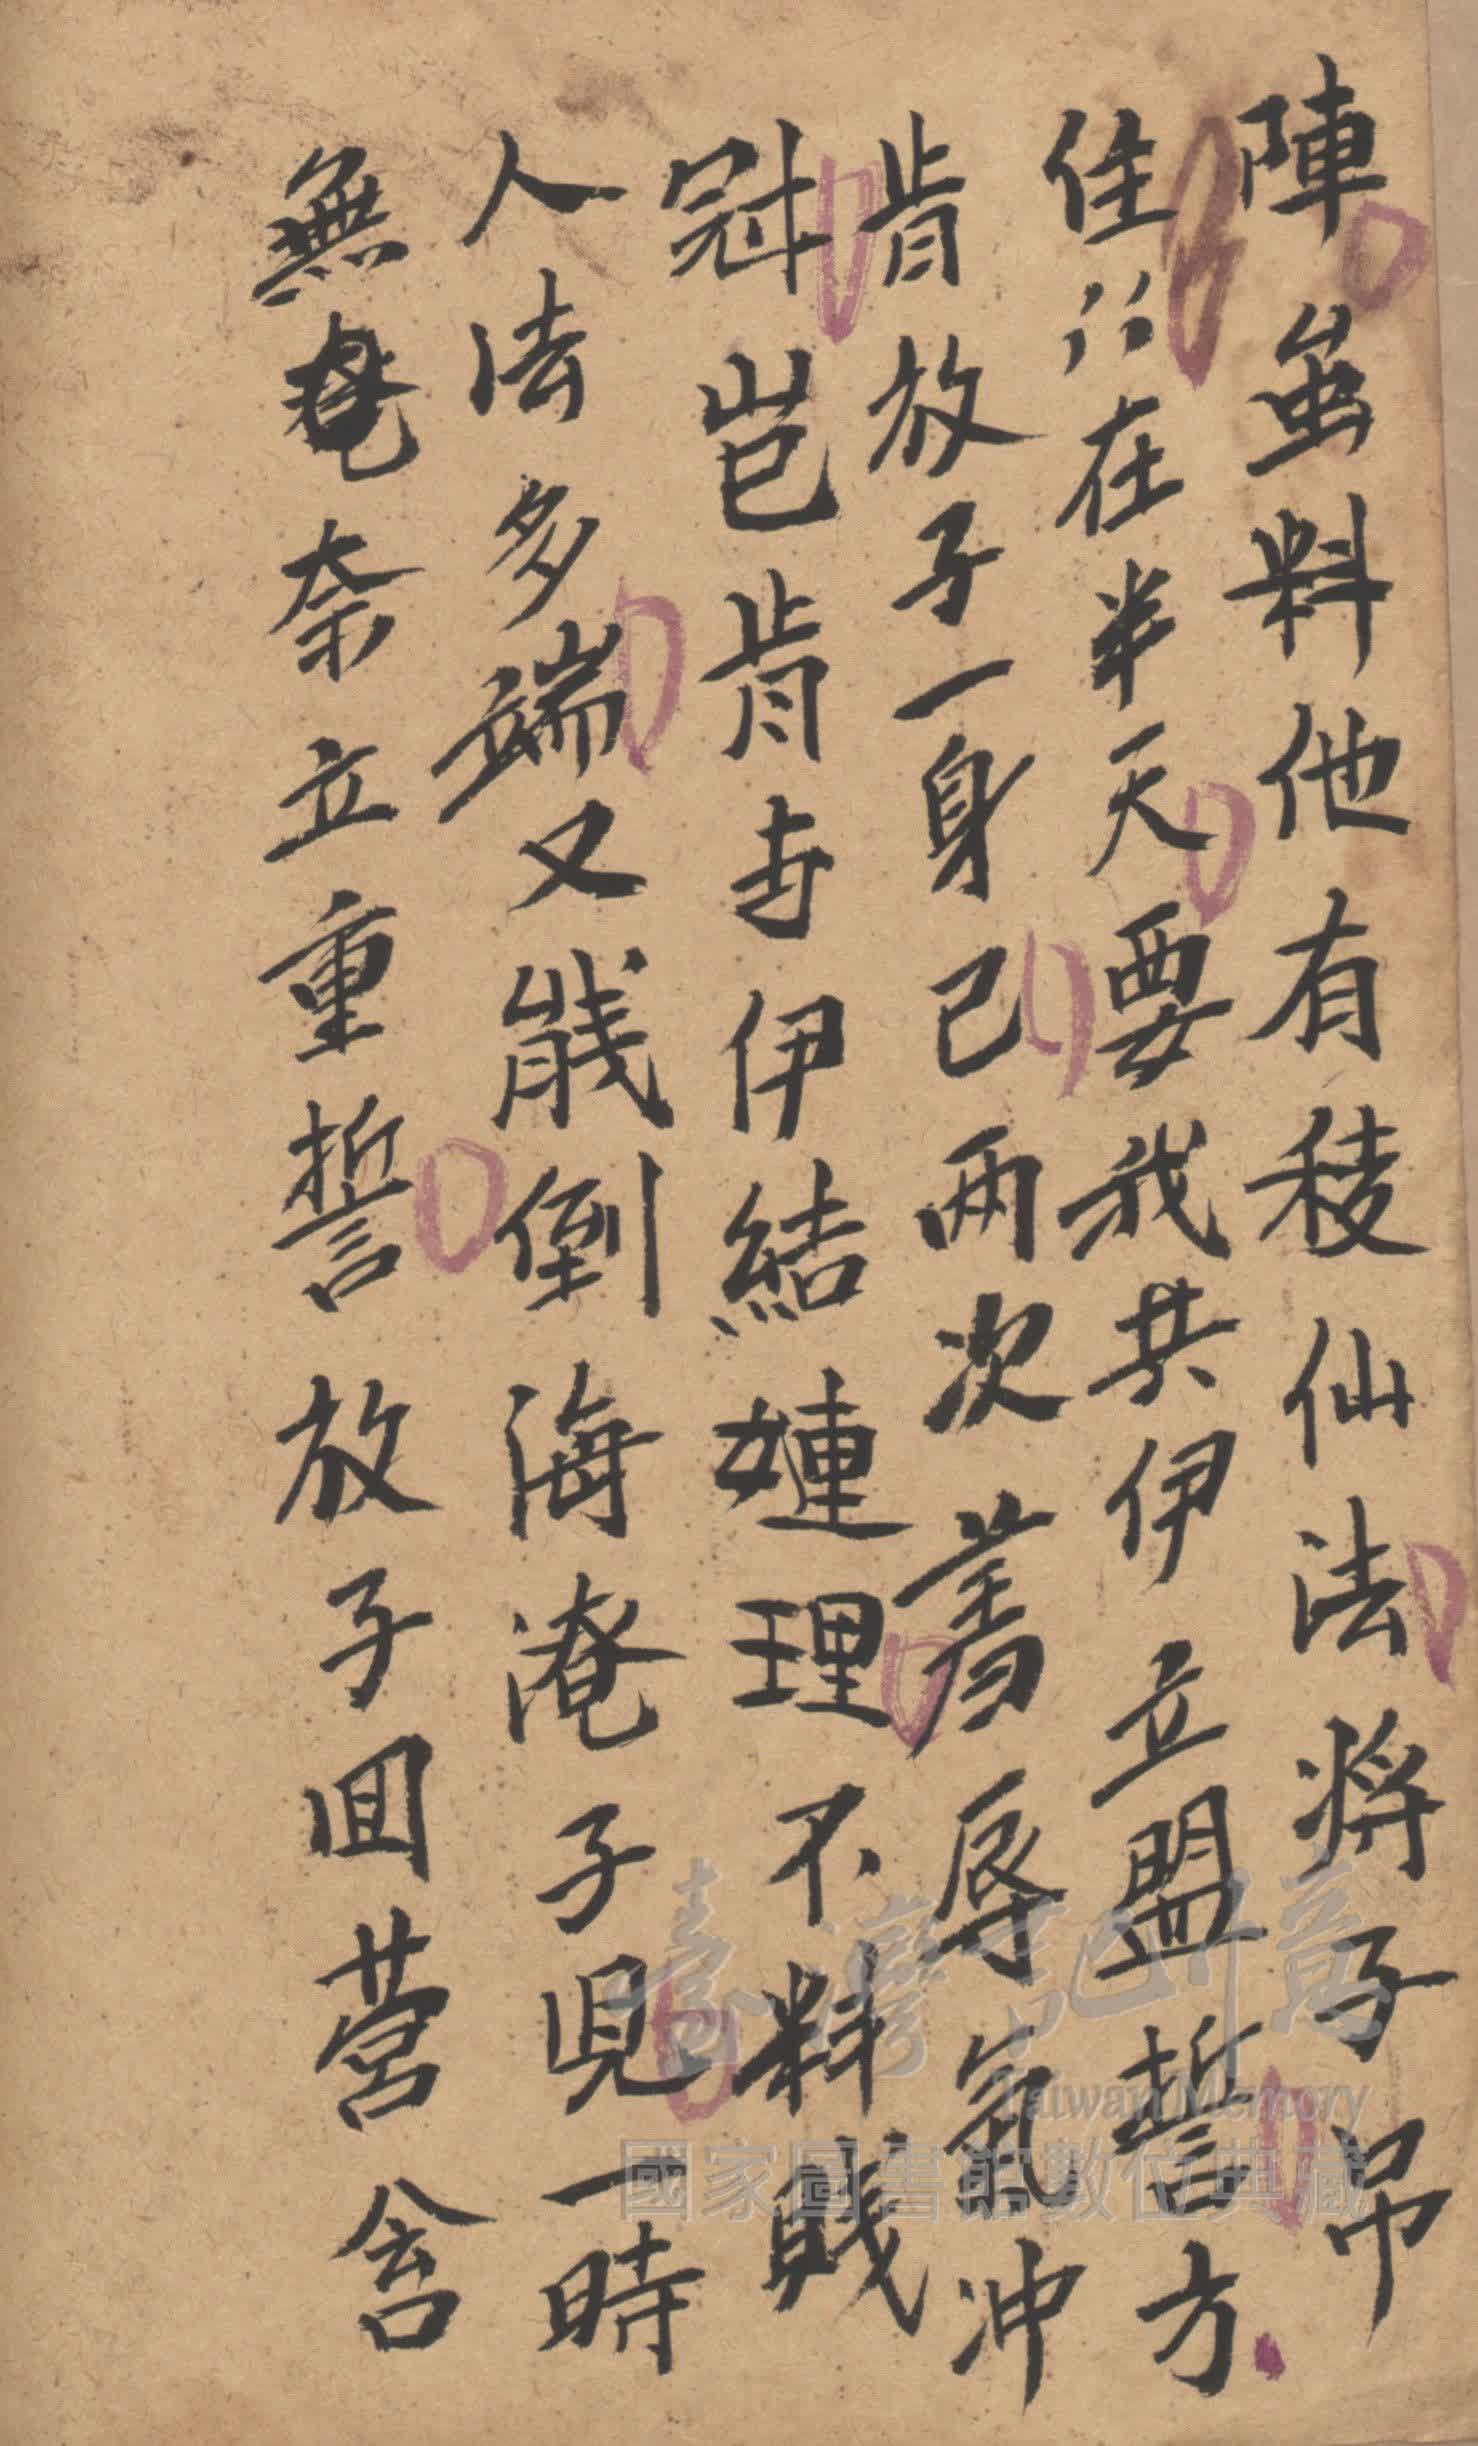 陣虽料他有稜仙法將子吊
住〻在半天要我共伊立盟誓方
肯放子一身已兩次羞辱氣冲
冠豈肯与伊結連理不料賤
人法多端又能倒海淹子兒一時
無奈立重誓放子回营舍
臺灣記憶
Taiwan Memory
國家圖書館數位典藏